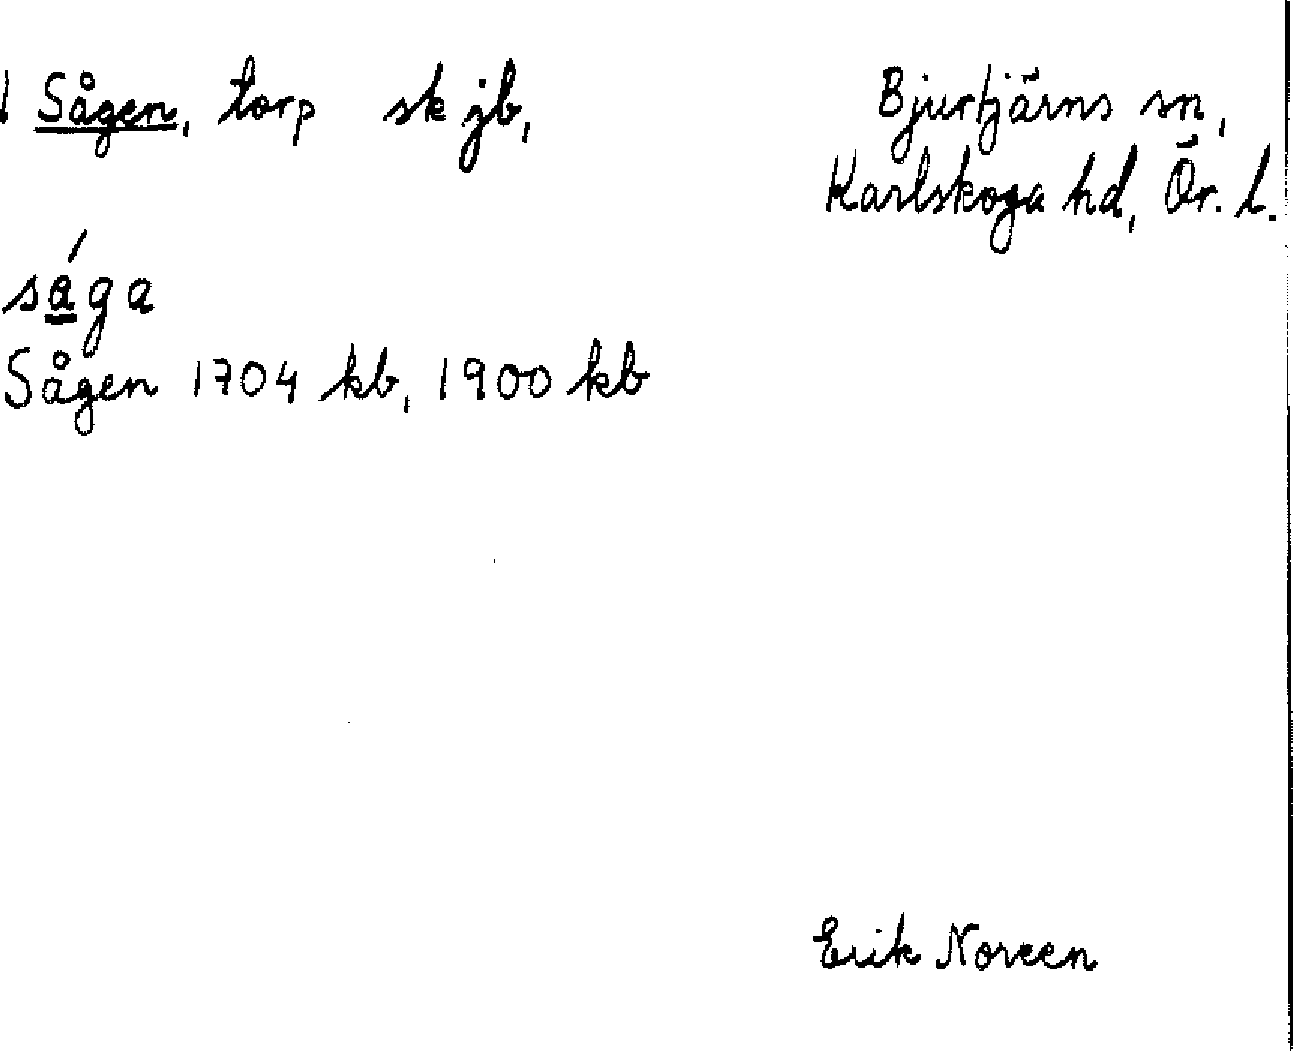 Sågen, torp sk jb, Bjurtjärns sn,
Karlskoga hd, Ör. l.
sága
Sågen 1704 kb, 1900 kb
Erik Noreen